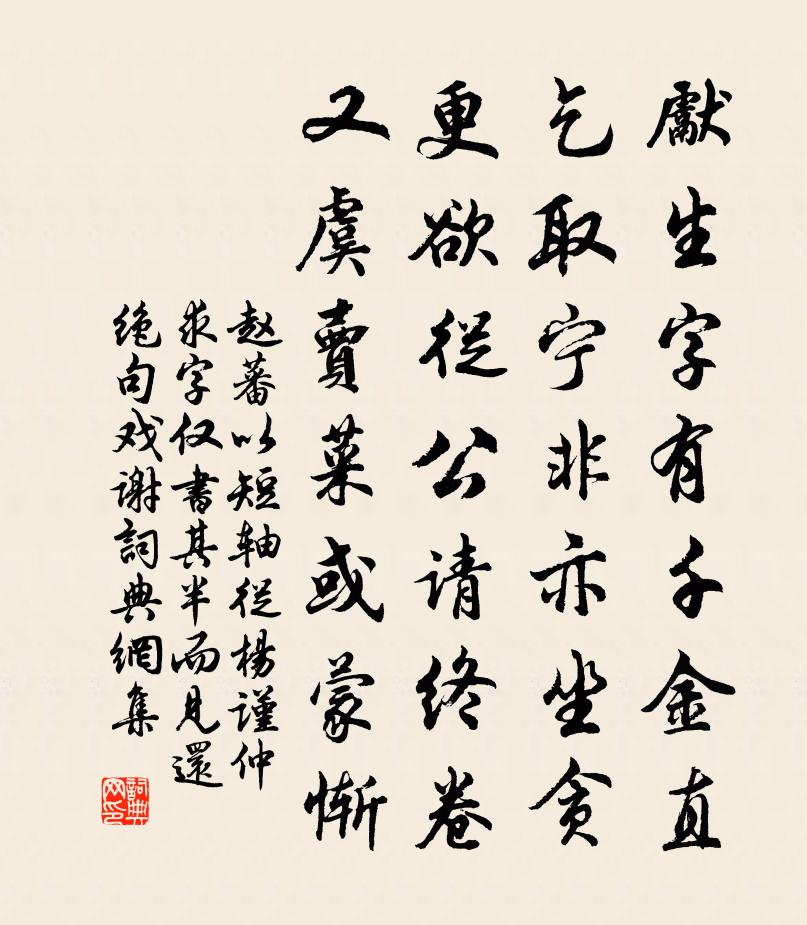 獻生字有千金直
乞取宁非亦坐贪
更欲從公请终卷
又虞賣菜或蒙慚
赵蕃以短轴從楊谨仲
求字仅書其半而見還
绝句戏谢詞典網集
詞典网印